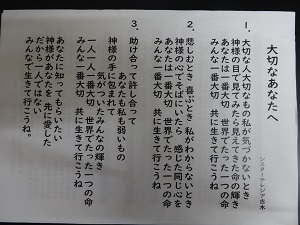 大切なあなたへ
シスターテレジア古木
1. 大切な人大切なもの私が気づかないとき
神様の目で見てみたら見えてきた命の輝き
あなたは一番大切 世界でたった一つの命
みんな一番大切 共に生きて行こうね
2. 悲しむとき 喜ぶとき 私がわからないとき
神様の心でそばにいたら 感じた同じ心を
あなたは一番大切 世界でたった一つの命
みんな一番大切 共に生きて行こうね
3. 助け合って許し合って
あなたも私も弱いもの
神様の手に包まれて
気がついたみんなの輝き
一人一人一番大切 世界でたった一つの命
みんな一番大切 共に生きて行こうね
あなたに知ってもらいたい
神様があなたを 先に愛した
だから一人ではない
みんなで生きて行こうね。